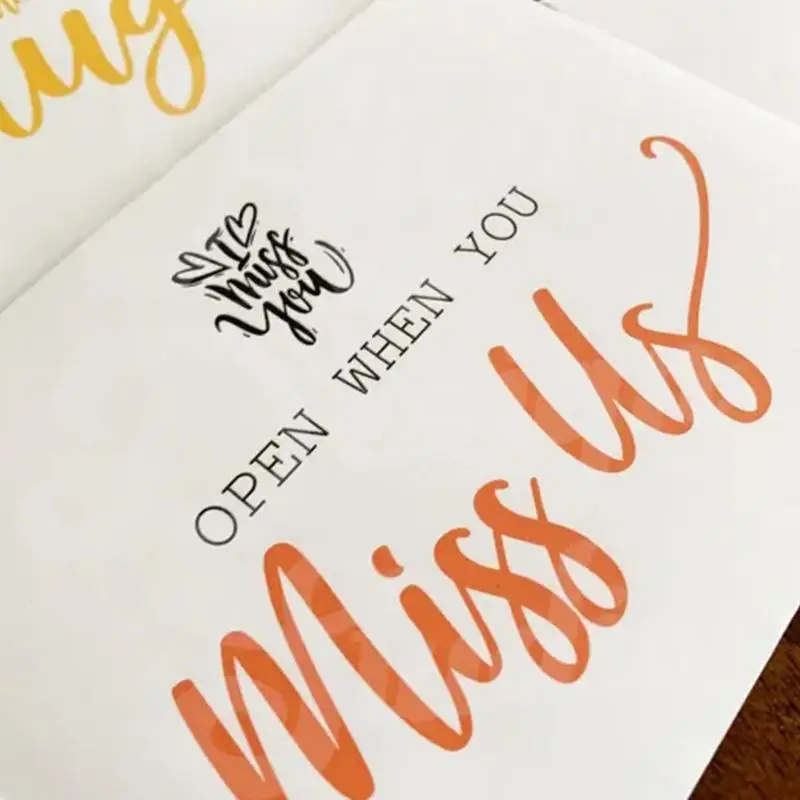 ug
I
miss
you
OPEN WHEN YOU
Miss Us